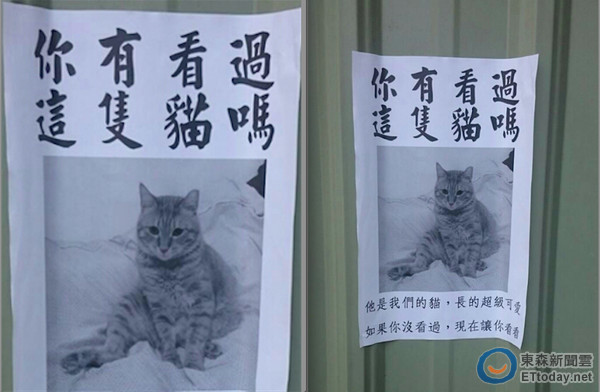 你有看過
這隻貓嗎
你有看過
這隻貓嗎
他是我們的貓，長的超級可愛
如果你沒看過，現在讓你看看
東森新聞雲
ETtoday.net